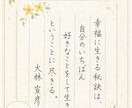 幸福に生きる秘訣は、
自分のいちばん
好きなことをして生き
ということに尽きる。
大林宣彦